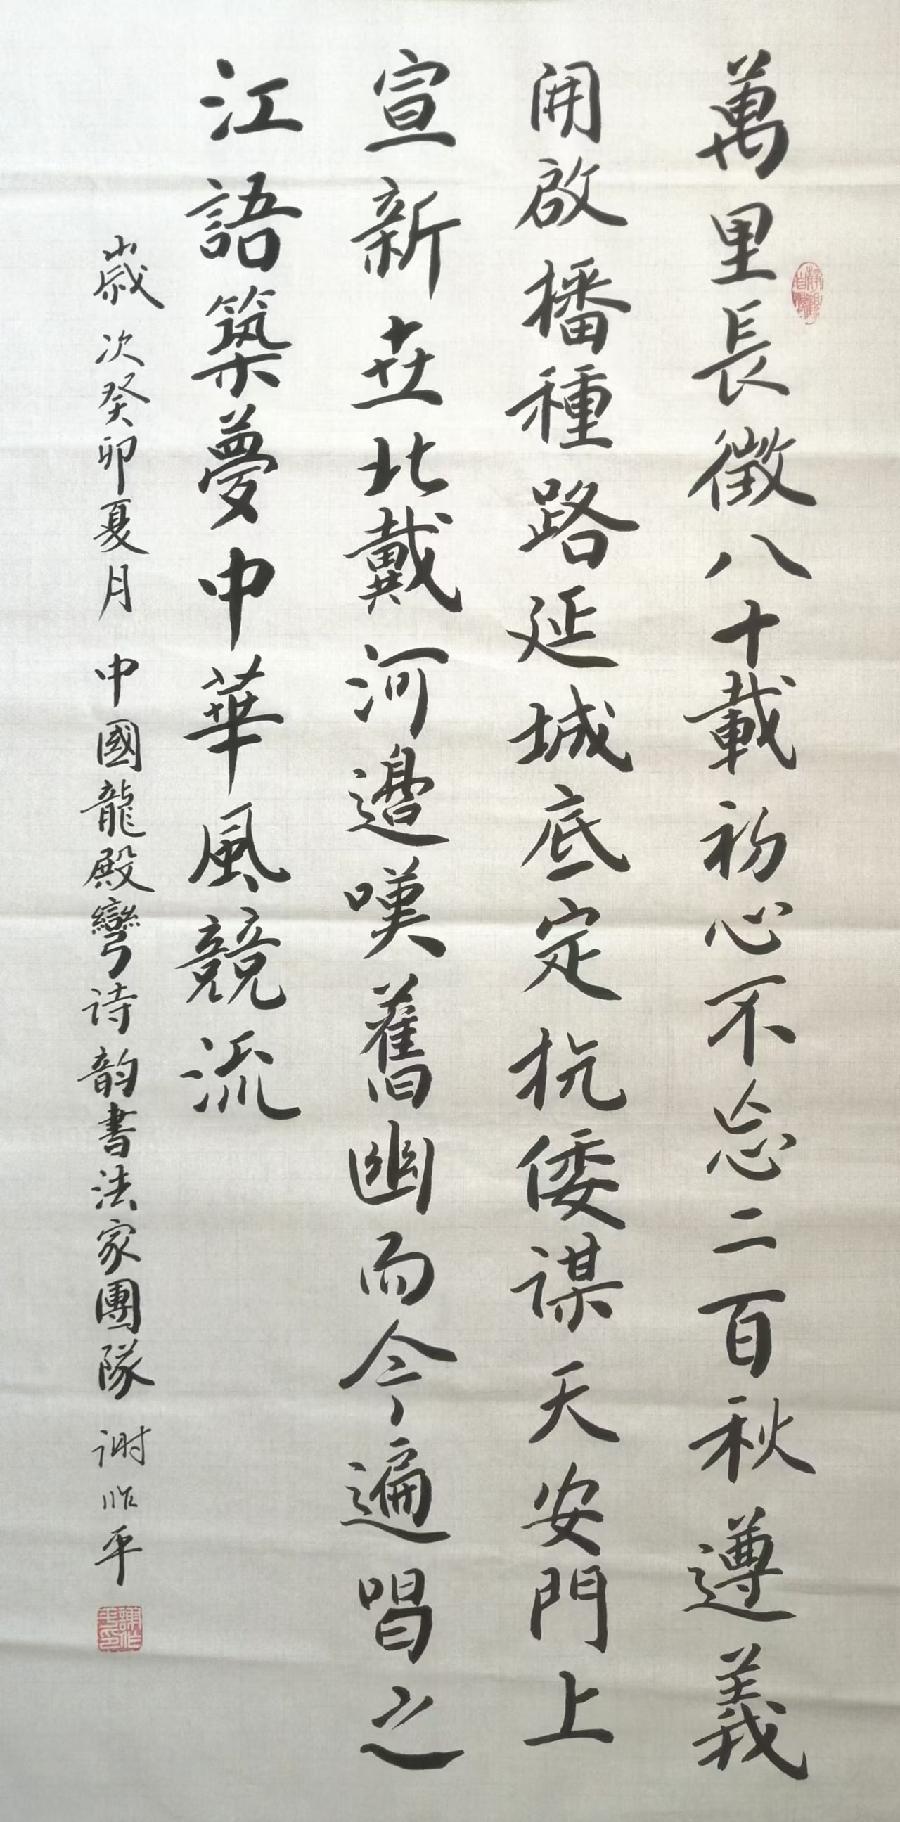 萬里長徵八十載初心不忘二百秋遵義
開啟播種路延城底定杭倭謀天安門上
宣新卋北戴河邊嘆舊幽而今遍唱之
江語築夢中華風競流
歲次癸卯夏月中國龍殿彎诗韵書法家團隊谢作平